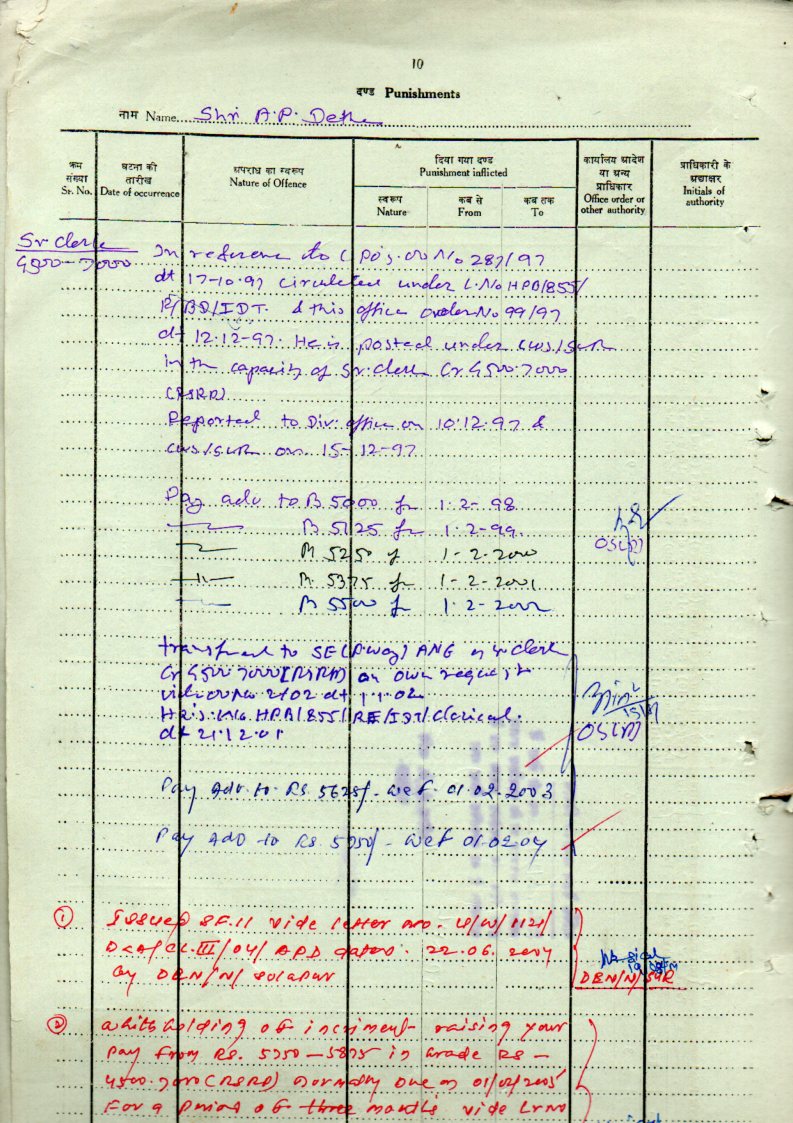 10
दण्ड Punishments
नाम Name Shri A.P. Dethe
क्रम संख्या Sr. No.
घटना की तारीख Date of occurrence
अपराध का स्वरूप Nature of Offence
दिया गया दण्ड Punishment inflicted
स्वरूप Nature
कब से From
कब तक To
कार्यालय आदेश या अन्य प्राधिकार Office order or other authority
प्राधिकारी के अद्याक्षर Initials of authority
Sr Clerk
4500-7000
In reference to CPO's oo No 287/97
dt 17-10-97 circulated under L.No HPB/855/
R/BD/IDT. & this office order No 99/97
dt 12.12-97. He is posted under CWS/SUR
in the capacity of Sr. clerk Gr 4500-7000
(RSRP)
Reported to Div. office on 10.12.97 &
CWS/SUR on 15-12-97
Pay adv to Rs 5000 fr 1.2-98
Rs 5125 fr 1.2-99.
Rs 5250 fr 1-2-2000
Rs 5375 fr 1-2-2001
Rs 5500 fr 1.2-2002
OS(P)
transferred to SE(P.way) ANG as sr clerk
Gr 4500-7000 (RSRP) on own request
vide oo No 2/02 dt 1.1.02
HPB/855/RE/IDT/Clerical.
dt 21.12.01
OS(P)
Pay Adv. to Rs 5625/- wef. 01.02.2003
Pay ADV to Rs 5750/- wef 01.02.04
① Issued SF.11 vide letter no. U/W/1121/
D&A/CL.III/04/APD dated. 22.06.2004
by DEN/N/Solapur
DEN/N/SUR
② withholding of increment raising your
pay from Rs. 5750-5875 in Grade Rs-
4500-7000 (RSRP) normally due on 01/02/2005
For a period of three months vide Lr no